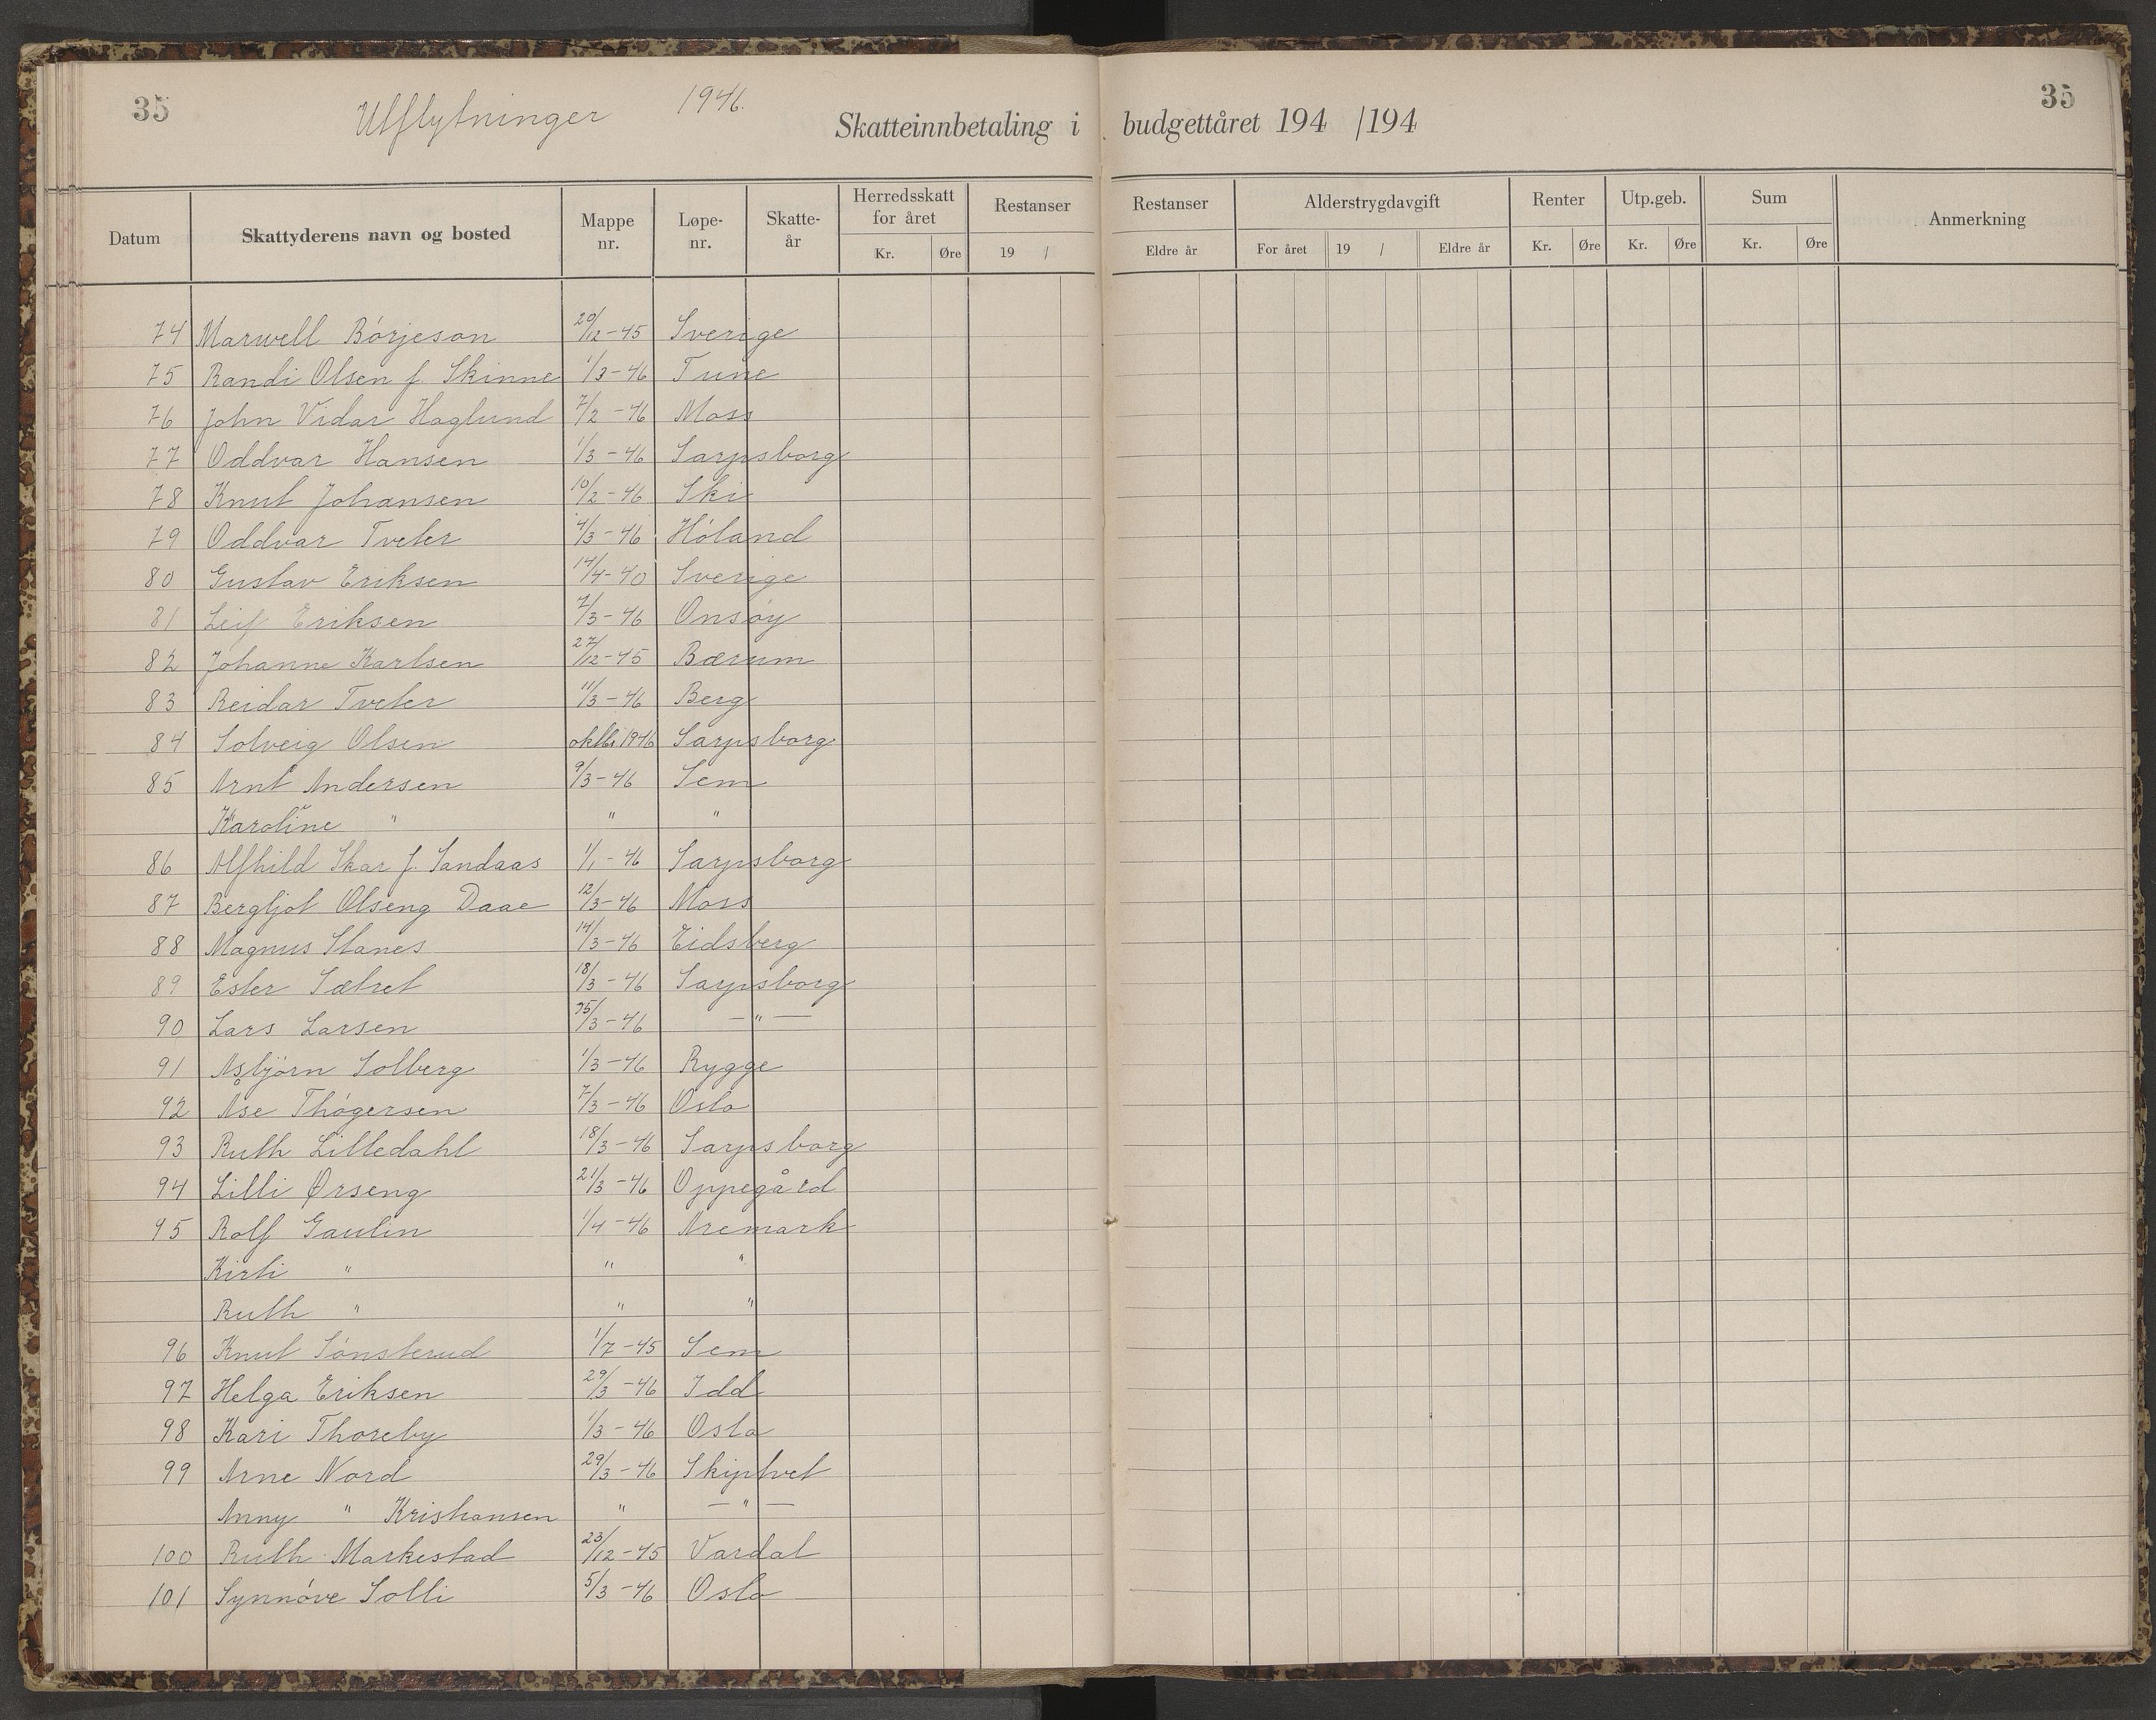 35 Utflytninger 1946. 35
Skatteinnbetaling i budgettåret 194 /194
Datum Skattyderens navn og bosted Mappe nr. Løpe- nr. Skatte- år Herredsskatt for året Kr. Øre Restanser 19 / Restanser Eldre år Alderstrygdavgift For året 19 / Eldre år Renter Kr. Øre Utp.geb. Kr. Øre Sum Kr. Øre Anmerkning
74 Marwell Börjeson 20/12-45 Sverige
75 Randi Olsen f. Skinne 1/3-46 Tune
76 John Vidar Haglund 7/2-46 Moss
77 Oddvar Hansen 1/3-46 Sarpsborg
78 Knut Johansen 10/2-46 Ski
79 Oddvar Tveter 4/3-46 Höland
80 Gustav Eriksen 14/4-40 Sverige
81 Leif Eriksen 7/3-46 Onsöy
82 Johanne Karlsen 27/12-45 Bærum
83 Reidar Tveter 11/3-46 Berg
84 Solveig Olsen oktbr. 1946 Sarpsborg
85 Arnt Andersen 9/3-46 Sem
Karoline " " "
86 Alfhild Skar f. Sandaas 1/1-46 Sarpsborg
87 Bergljot Olseng Daae 12/3-46 Moss
88 Magnus Stanes 14/3-46 Eidsberg
89 Ester Sætret 18/3-46 Sarpsborg
90 Lars Larsen /3-46 —"—
91 Asbjörn Solberg 1/3-46 Rygge
92 Åse Thögersen 7/3-46 Oslo
93 Ruth Lilledahl 18/3-46 Sarpsborg
94 Lilli Ørseng 21/3-46 Oppegård
95 Rolf Gaulin 1/4-46 Aremark
Kirti " " "
Ruth " " "
96 Knut Sönsterud 1/7-45 Sem
97 Helga Eriksen 29/3-46 Idd
98 Kari Thoreby 1/3-46 Oslo
99 Arne Nord 29/3-46 Skiptvet
Anny " Kristiansen " —"—
100 Ruth Markestad 23/12-45 Vardal
101 Synnöve Solli 5/3-46 Oslo